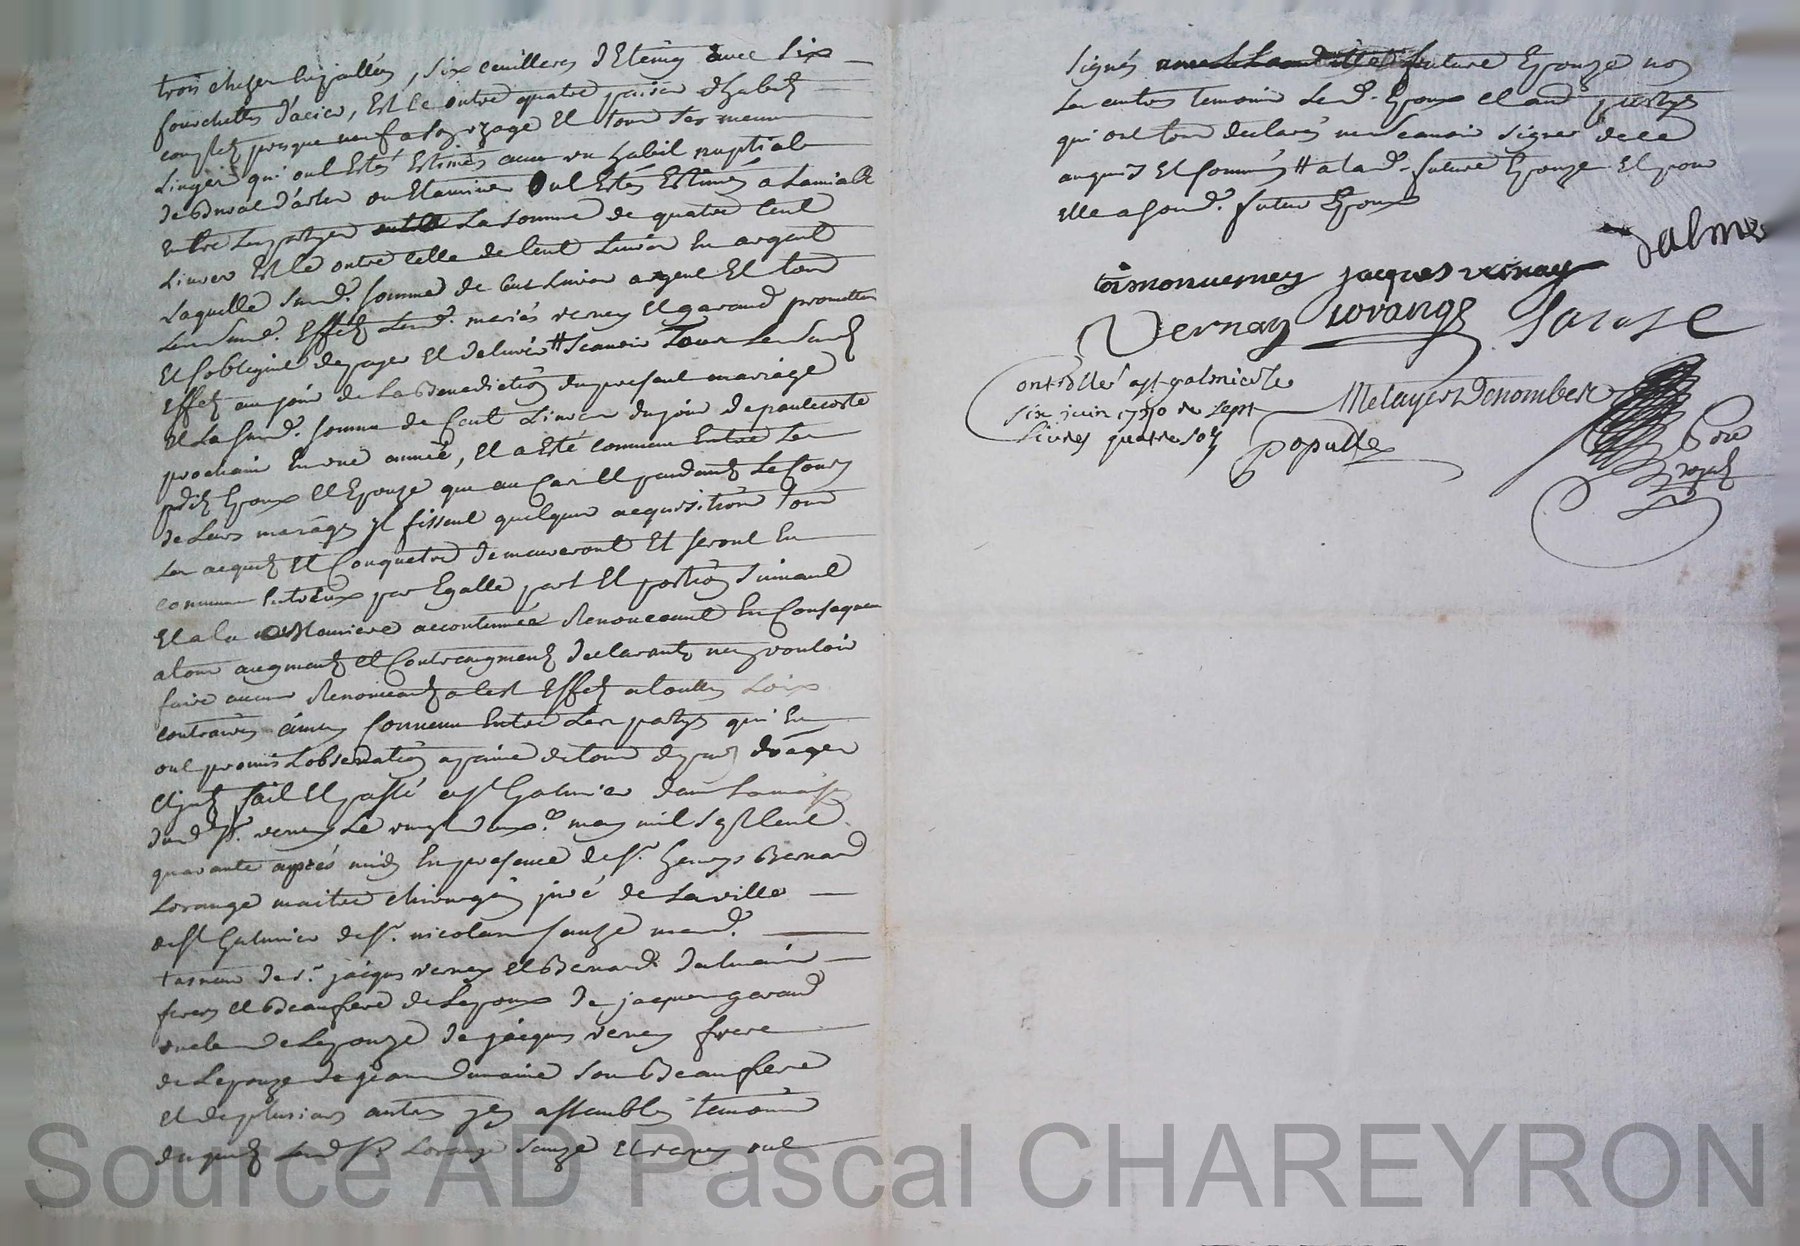 trois chezes enpallée, six ceuilleres d'Etaing avec six
fourchettes d'acier, Et le outre quatre paires d'habits
complet presque neuf a son uzage Et tous ses menus
Linges qui ont Estés Estimés avec un habit nuptial
de Burat d'arles ou Etamine ont Estés Estimés a Lamiable
entre Les partyes a La somme de quatre Cent
Livres Et le outre Celle de Cent Livres En argent
Laquelle sus d. somme de Cent Livres argent Et tous
Les sus d. Effets Les d. mariés verney Et garand promettent
Et sobligent de payer Et delivrer # Scavoir Tous Les susd
Effets au jour de La Benediction du present mariage
Et La sus d. somme de Cent Livres du jour de pantecoste
prochain En une année, Et a Eté convenu Entre Les
pdts Epoux Et Epouze que au Cas Et pendant Le Cours
de Leurs mariage ils fissent quelques acquisitions tous
Les acquets Et Conquets demeureront Et seront En
commun Entr'eux par Egalle part Et portion suivant
Et a la Maniere accoutumée Renonceant En Consequence
a tous augments Et Contreaugments declarants ny vouloir
faire aucun Renonceant a cest Effet a toutes Loix
contraires ainsy Convenu Entre Les partyes qui En
ont promis Lobservation a peine de tous depens
fait Et passé a st Galmier dans La maison
dud sr. verney Le vingt deux may mil sept Cent
quarante après midy En presence de sr. henrys Bernard
Lorange maitre chirurgien juré de La ville
de st Galmier de sr. nicolas sauze mard.
taneur de sr. jacques verney Et Bernard dalmais
freres Et Beaufrere de Lepoux de jacques garand
oncle de Lepouze de jacques verney frere
de Lepouze de jean dumaine son Beaufrere
et de plusieurs autres gens assemblés temoins
desquels Les d srs Lorange sauze Et verney ont
signés future Epouze non
Les autres temoins Le d. Epoux Et aud partyes
qui ont tous declarés ne Scavoir signer de ce
enquis Et sommés # a la d. future Epouze Et pour
elle a son d. futur Epoux
dalmes
simon verney jacques vernay
Vernay Lorange Sauze
Controllé a st galmier le
six juin 1740 Re sept
Livres quatre sols
Metayer Denombre
Populle